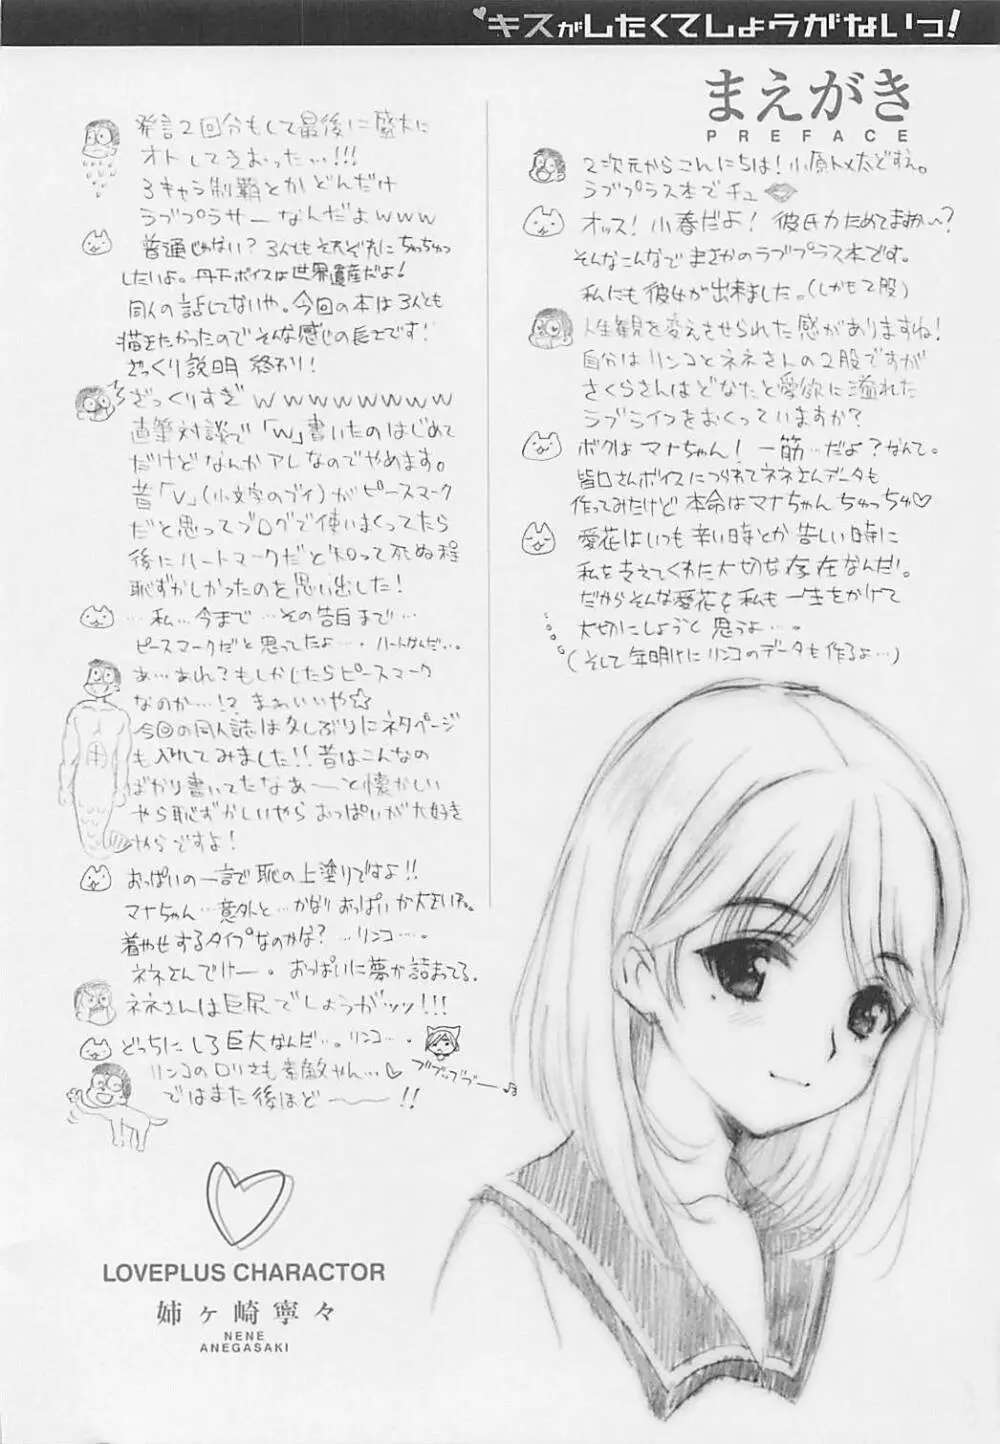 キスがしたくてしょうがないっ!
まえがき
PREFACE
2次元からこんにちは!小原トメ太どすえ。
ラブプラス本でチュ
オッス!小春だよ!彼氏力ためてますか〜?
そんなこんなでまさかのラブプラス本です。
私にも彼女が出来ました。(しかも2股)
人生観を変えさせられた感がありますね!
自分はリンコとネネさんの2股ですが
さくらさんはどなたと愛欲に溢れた
ラブライフをおくっていますか?
ボクはマナちゃん!一筋…だよ?なんて。
皆口さんボイスにつられてネネさんデータも
作ってみたけど本命はマナちゃんちゅっちゅ♡
愛花はいつも辛い日時とか苦しい日時に
私を支えてくれた大切な存在なんだ!。
だからそんな愛花を私も一生をかけて
大切にしようと思うよ…。
(そして年明けにリンコのデータも作るよ…)
発言2回分もして最後に盛大に
オトしてきおったぃ!!!
3キャラ制覇とかどんだけ
ラブプラサーなんだよwww
普通じゃない?3人ともそれぞれにちゅっちゅっ
したいよ。丹下ボイスは世界遺産だよ!
同人の話してないや。今回の本は3人とも
描きたかったのでそんな感じの長さです!
ざっくり説明終わり!
ざっくりすぎwwwwwwww
直筆対談で「w」書いたのはじめて
だけどなんかアレなのでやめます。
昔「v」(小文字のブイ)がピースマーク
だと思ってブログで使いまくってたら
後にハートマークだと知って死ぬ程
恥ずかしかったのを思い出した!
…私…今まで…その告白まで…
ピースマークだと思ってたよ…。ハートなんだ…。
あ…あれ?もしかしたらピースマーク
なのか…!?まぁいいや☆
今回の同人誌は久しぶりにネタページ
も入れてみました!!昔はこんなの
ばかり書いてたなあ―と懐かしい
やら恥ずかしいやらおっぱいが大好き
やらですよ!
おっぱいの一言で恥の上塗りですよ!!
マナちゃん…意外と…かなりおっぱいか大きいね。
着やせするタイプなのかな?…リンコ…。
ネネさんでけー。おっぱいに夢が詰まってる。
ネネさんは巨尻でしょうがッッ!!!
どっちにしろ巨大なんだ…。リンコ…。
リンコのロリさも素敵やん…♡
ブブッブブー♪
ではまた後ほど――!!
LOVEPLUS CHARACTOR
姉ヶ崎寧々
NENE
ANEGASAKI